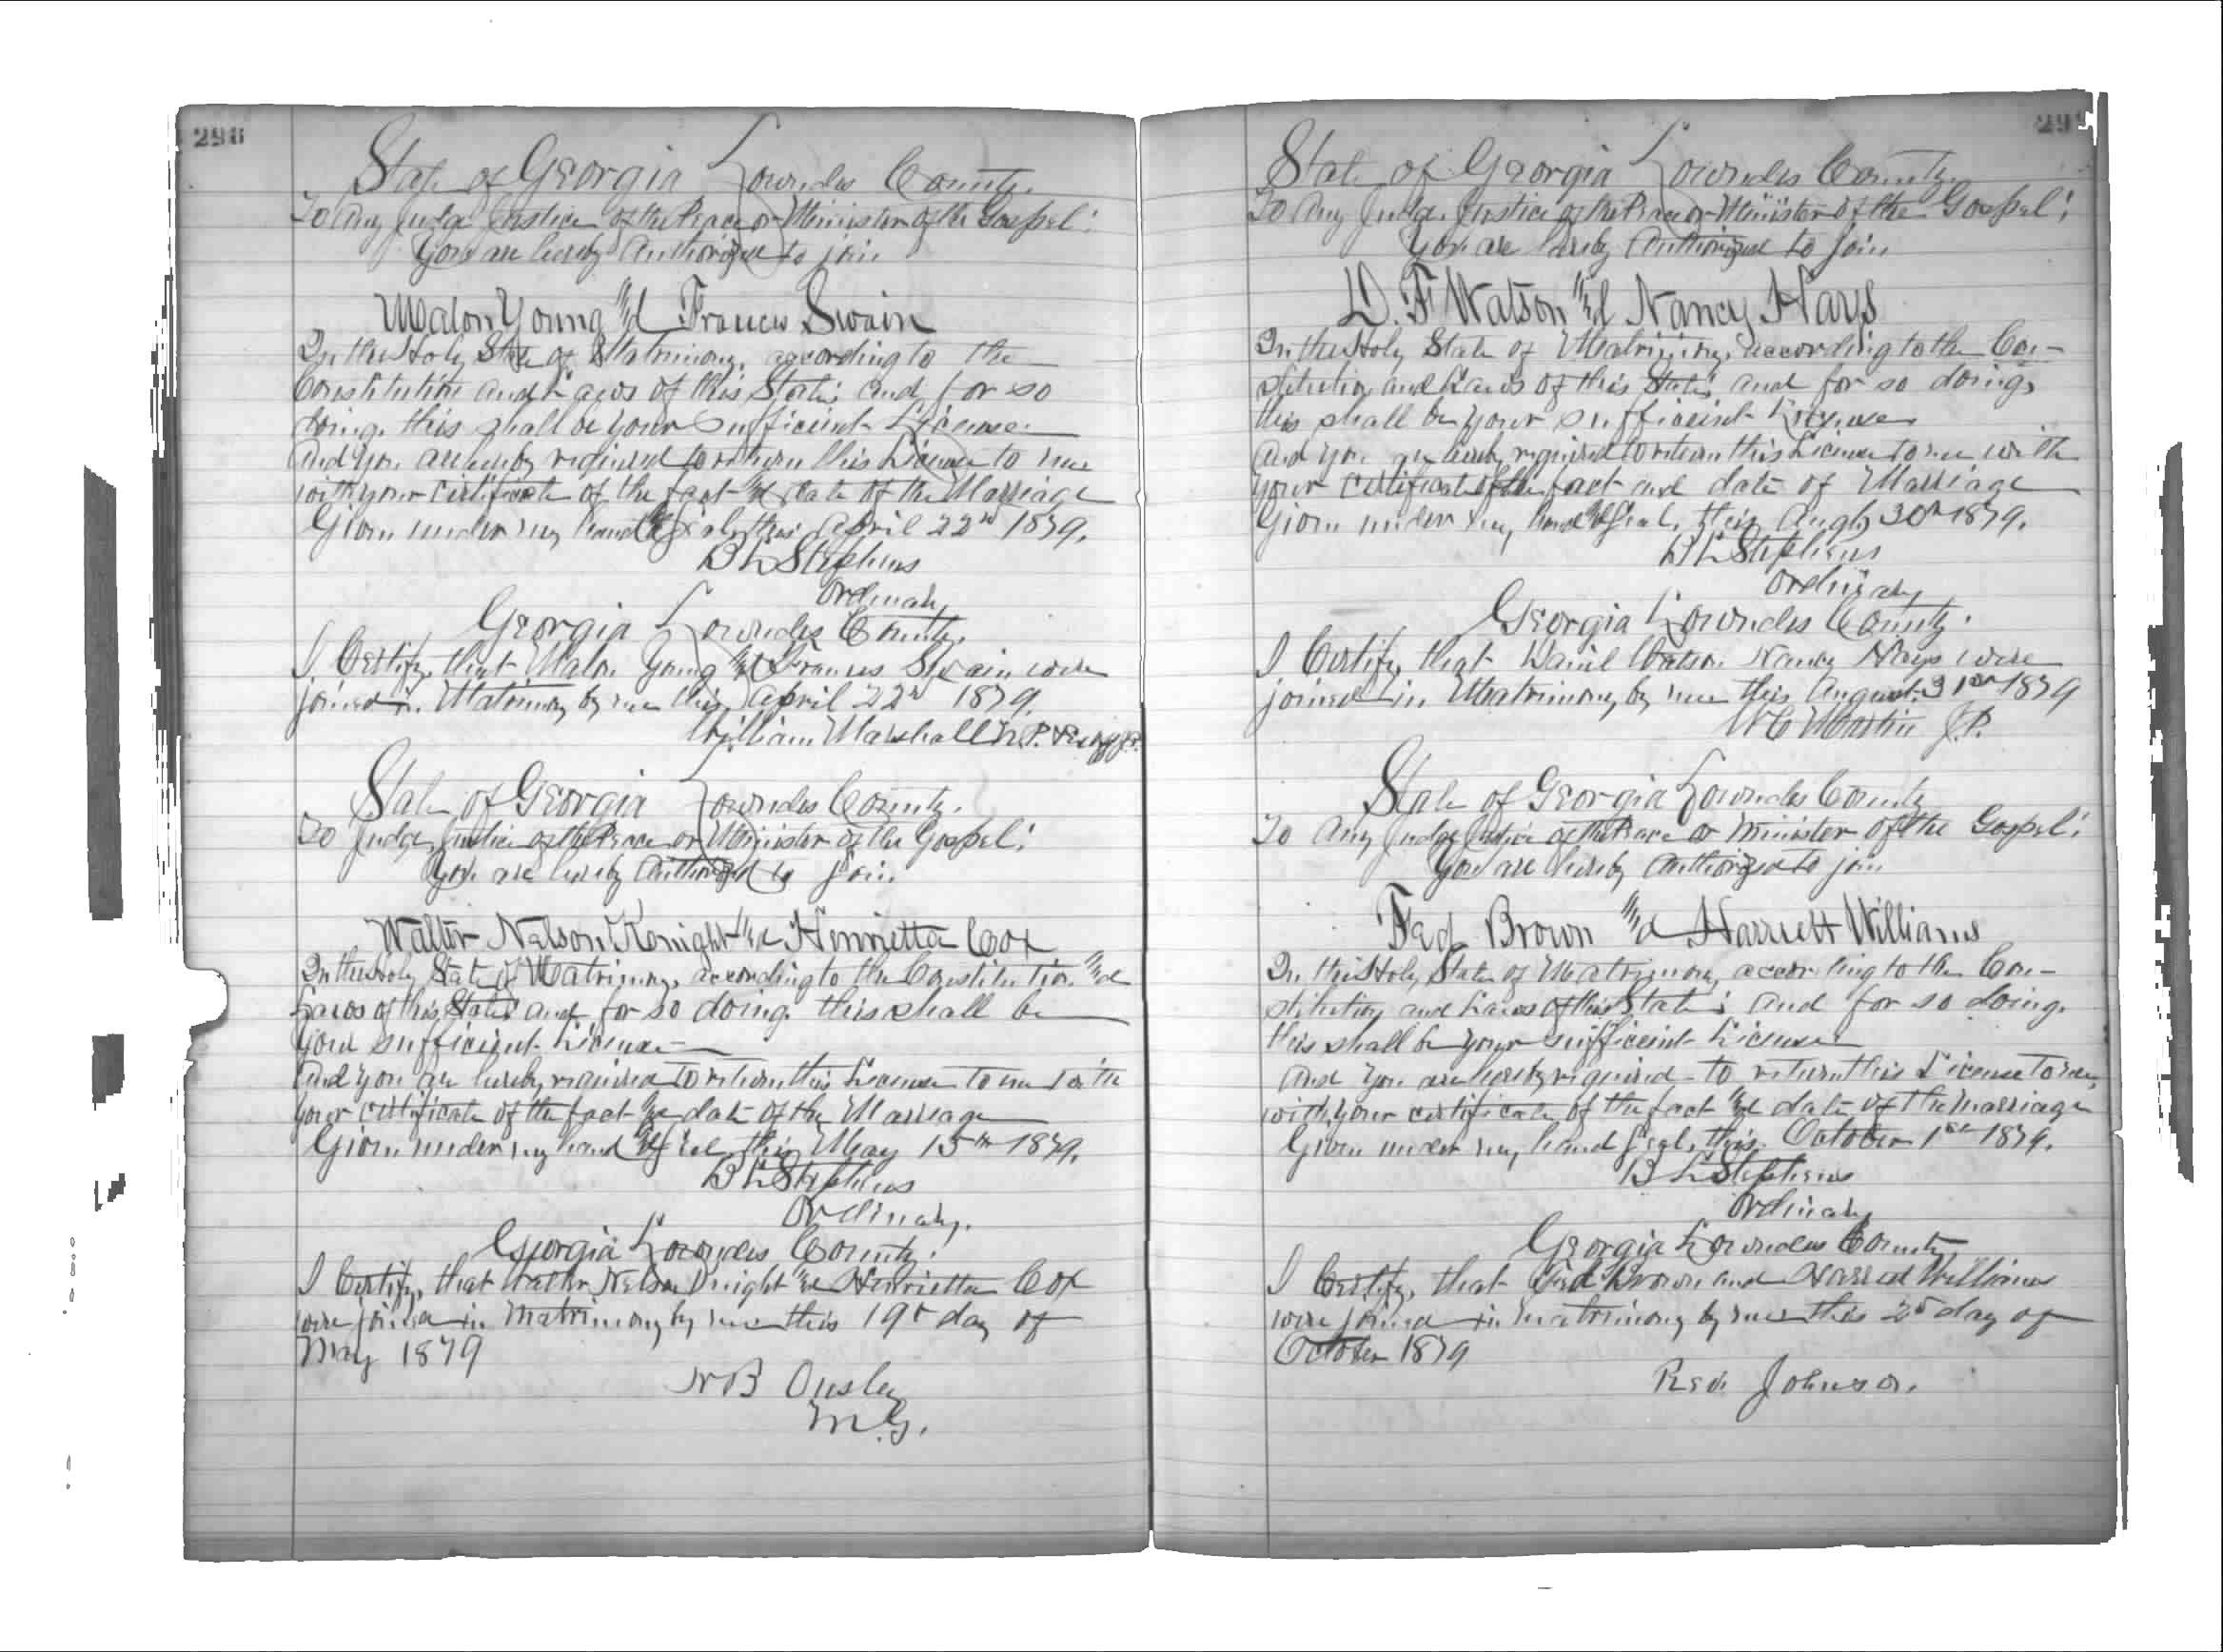 298
State of Georgia Lowndes County.
To Any Judge Justice of the Peace or Minister of the Gospel:
You are hereby Authorized to join
Malon Young and Frances Swain
In the Holy State of Matrimony, according to the
Constitution and Laws of this State; and for so
doing, this shall be your sufficient License.
And you are hereby required to return this License to me
with your Certificate of the fact and date of the Marriage
Given under my hand & Seal, this April 22nd 1879.
B L Stephens
Ordinary
Georgia Lowndes County.
I Certify, that Malon Young and Frances Swain were
joined in Matrimony by me this April 22nd 1879.
William Marshall N.P.
State of Georgia Lowndes County.
To Judge, Justice of the Peace or Minister of the Gospel:
You are hereby Authorized to join
Walter Nelson Knight and Henrietta Cox
In the Holy State of Matrimony, according to the Constitution and
Laws of this State; and for so doing, this shall be
your sufficient License
And you are hereby required to return this License to me with
your certificate of the fact and date of the Marriage
Given under my hand & Seal this May 15th 1879.
B L Stephens
Ordinary.
Georgia Lowndes County.
I Certify, that Walter Nelson Knight and Henrietta Cox
were joined in Matrimony by me this 19th day of
May 1879
N B Ousley
M.G.
State of Georgia Lowndes County.
To Any Judge, Justice of the Peace or Minister of the Gospel:
You are hereby Authorized to join
D. F Watson and Nancy Hays
In the Holy State of Matrimony, according to the Con-
stitution and Laws of this State; and for so doing,
this shall be your sufficient License
And you are hereby required to return this License to me with
your certificate of the fact and date of Marriage
Given under my hand & Seal, this Augt, 30th 1879.
B L Stephens
Ordinary
Georgia Lowndes County.
I Certify, that Daniel Watson Nancy Hays were
joined in Matrimony, by me this August 31st 1879
Martin J.P.
State of Georgia Lowndes County
To Any Judge Justice of the Peace or Minister of the Gospel:
You are hereby Authorized to join
Fed Brown and Harriett Williams
In the Holy State of Matrimony, according to the Con-
stitution and Laws of this State; and for so doing.
this shall be your sufficient License
And you are hereby required to return this License to me,
with your certificate of the fact and date of the marriage
Given under my hand Seal, this October 1st 1879.
B L Stephens
Ordinary
Georgia Lowndes County
I Certify, that Fed Brown and Harriet Williams
were joined in matrimony by me this 2d day of
October 1879
Revd Johnson.